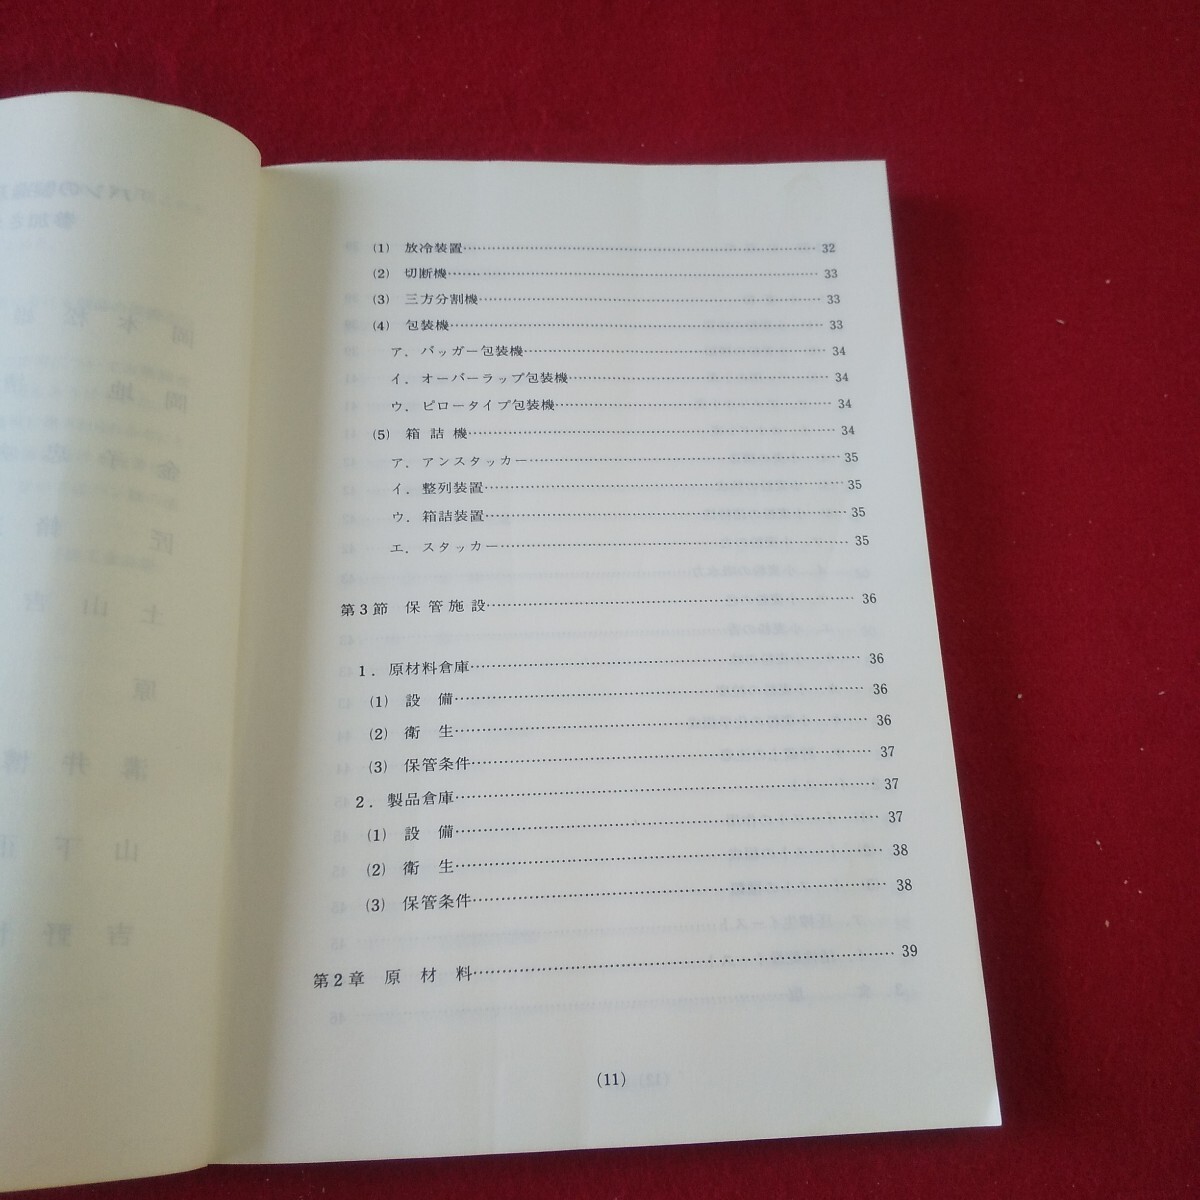 (1) 放冷装置…………32
(2) 切断機…………33
(3) 三方分割機…………33
(4) 包装機…………33
ア．バッガー包装機…………34
イ．オーバーラップ包装機…………34
ウ．ピロータイプ包装機…………34
(5) 箱詰機…………34
ア．アンスタッカー…………35
イ．整列装置…………35
ウ．箱詰装置…………35
エ．スタッカー…………35
第3節 保管施設…………36
1．原材料倉庫…………36
(1) 設備…………36
(2) 衛生…………36
(3) 保管条件…………37
2．製品倉庫…………37
(1) 設備…………37
(2) 衛生…………38
(3) 保管条件…………38
第2章 原材料…………39
(11)